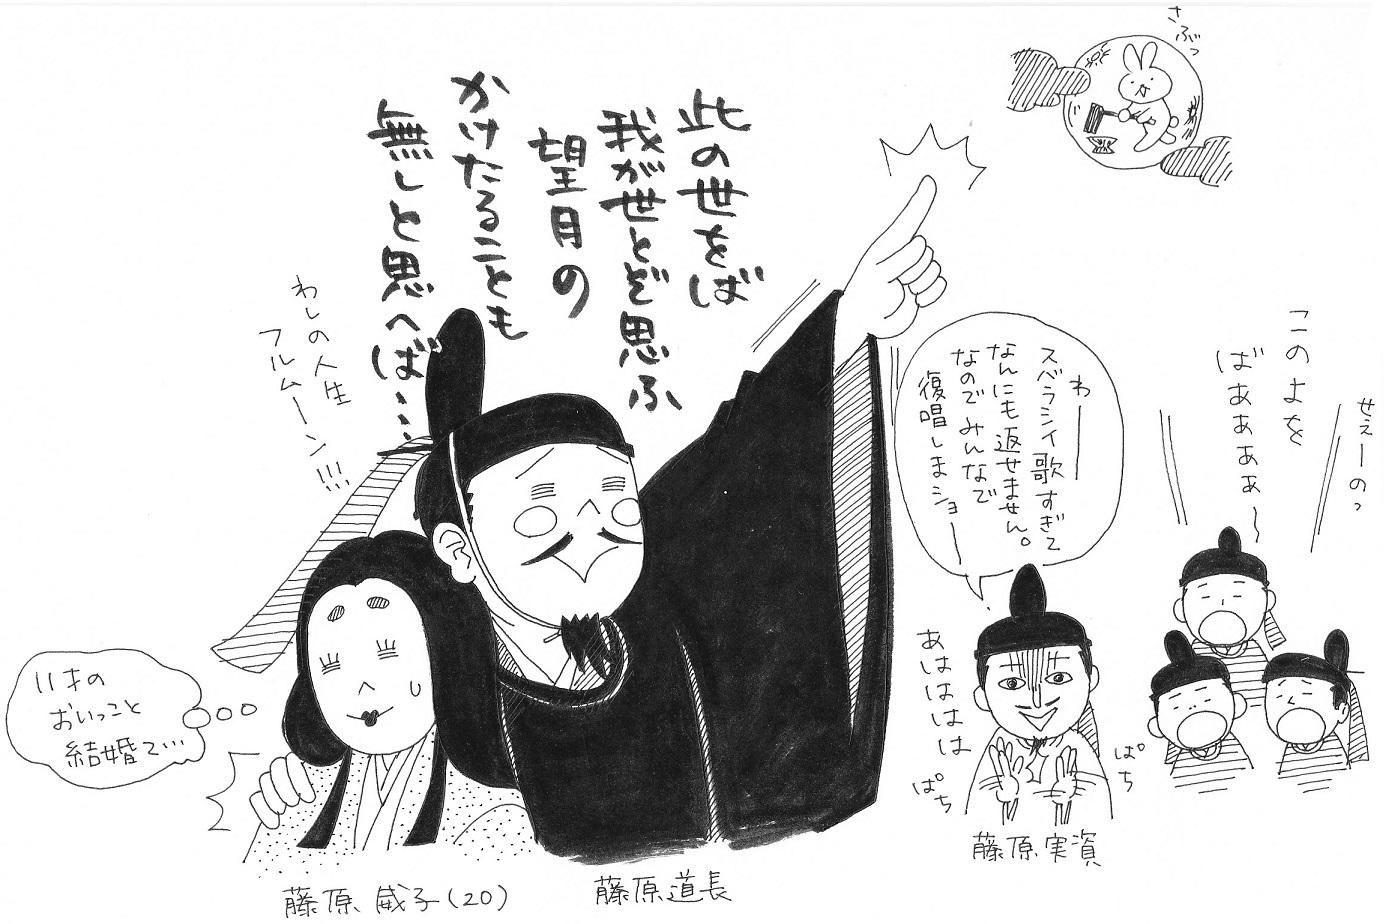 さぶっ
此の世をば
我が世とぞ思ふ
望月の
かけたることも
無しと思へば・・・
わしの人生
フルムーン!!!
わーー
スバラシイ歌すぎて
なんにも返せません。
なのでみんなで
復唱しまショー
せぇーのっ
このよを
ばぁぁぁぁ〜
あはははは
ぱち
ぱち
藤原実資
11才の
おいっこと
結婚て…
藤原威子(20)
藤原道長